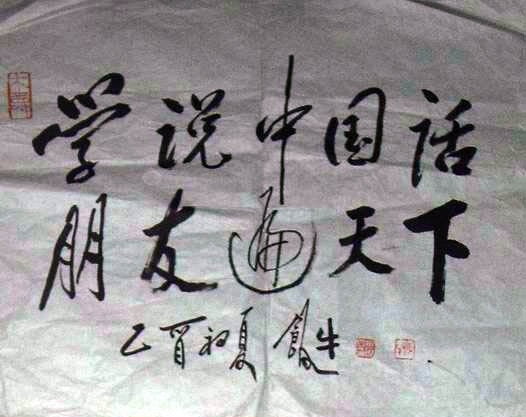 学说中国话
朋友遍天下
乙酉初夏 牛